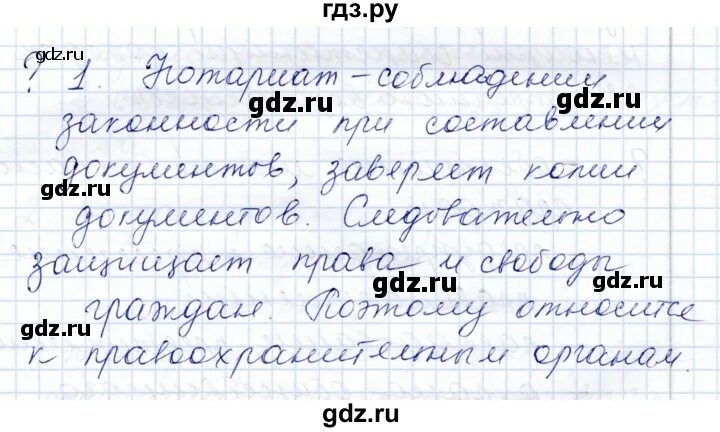 гдз.ру
? 1. Нотариат – соблюдении
законности при составлении
документов, заверяет копии
документов. Следовательно
защищает права и свободы
граждан. Поэтому относится
к правоохранительным органам.
gdz.ru
gdz.ru
gdz.ru
gdz.ru
gdz.ru
gdz.ru
gdz.ru
gdz.ru
gdz.ru
gdz.ru
gdz.ru